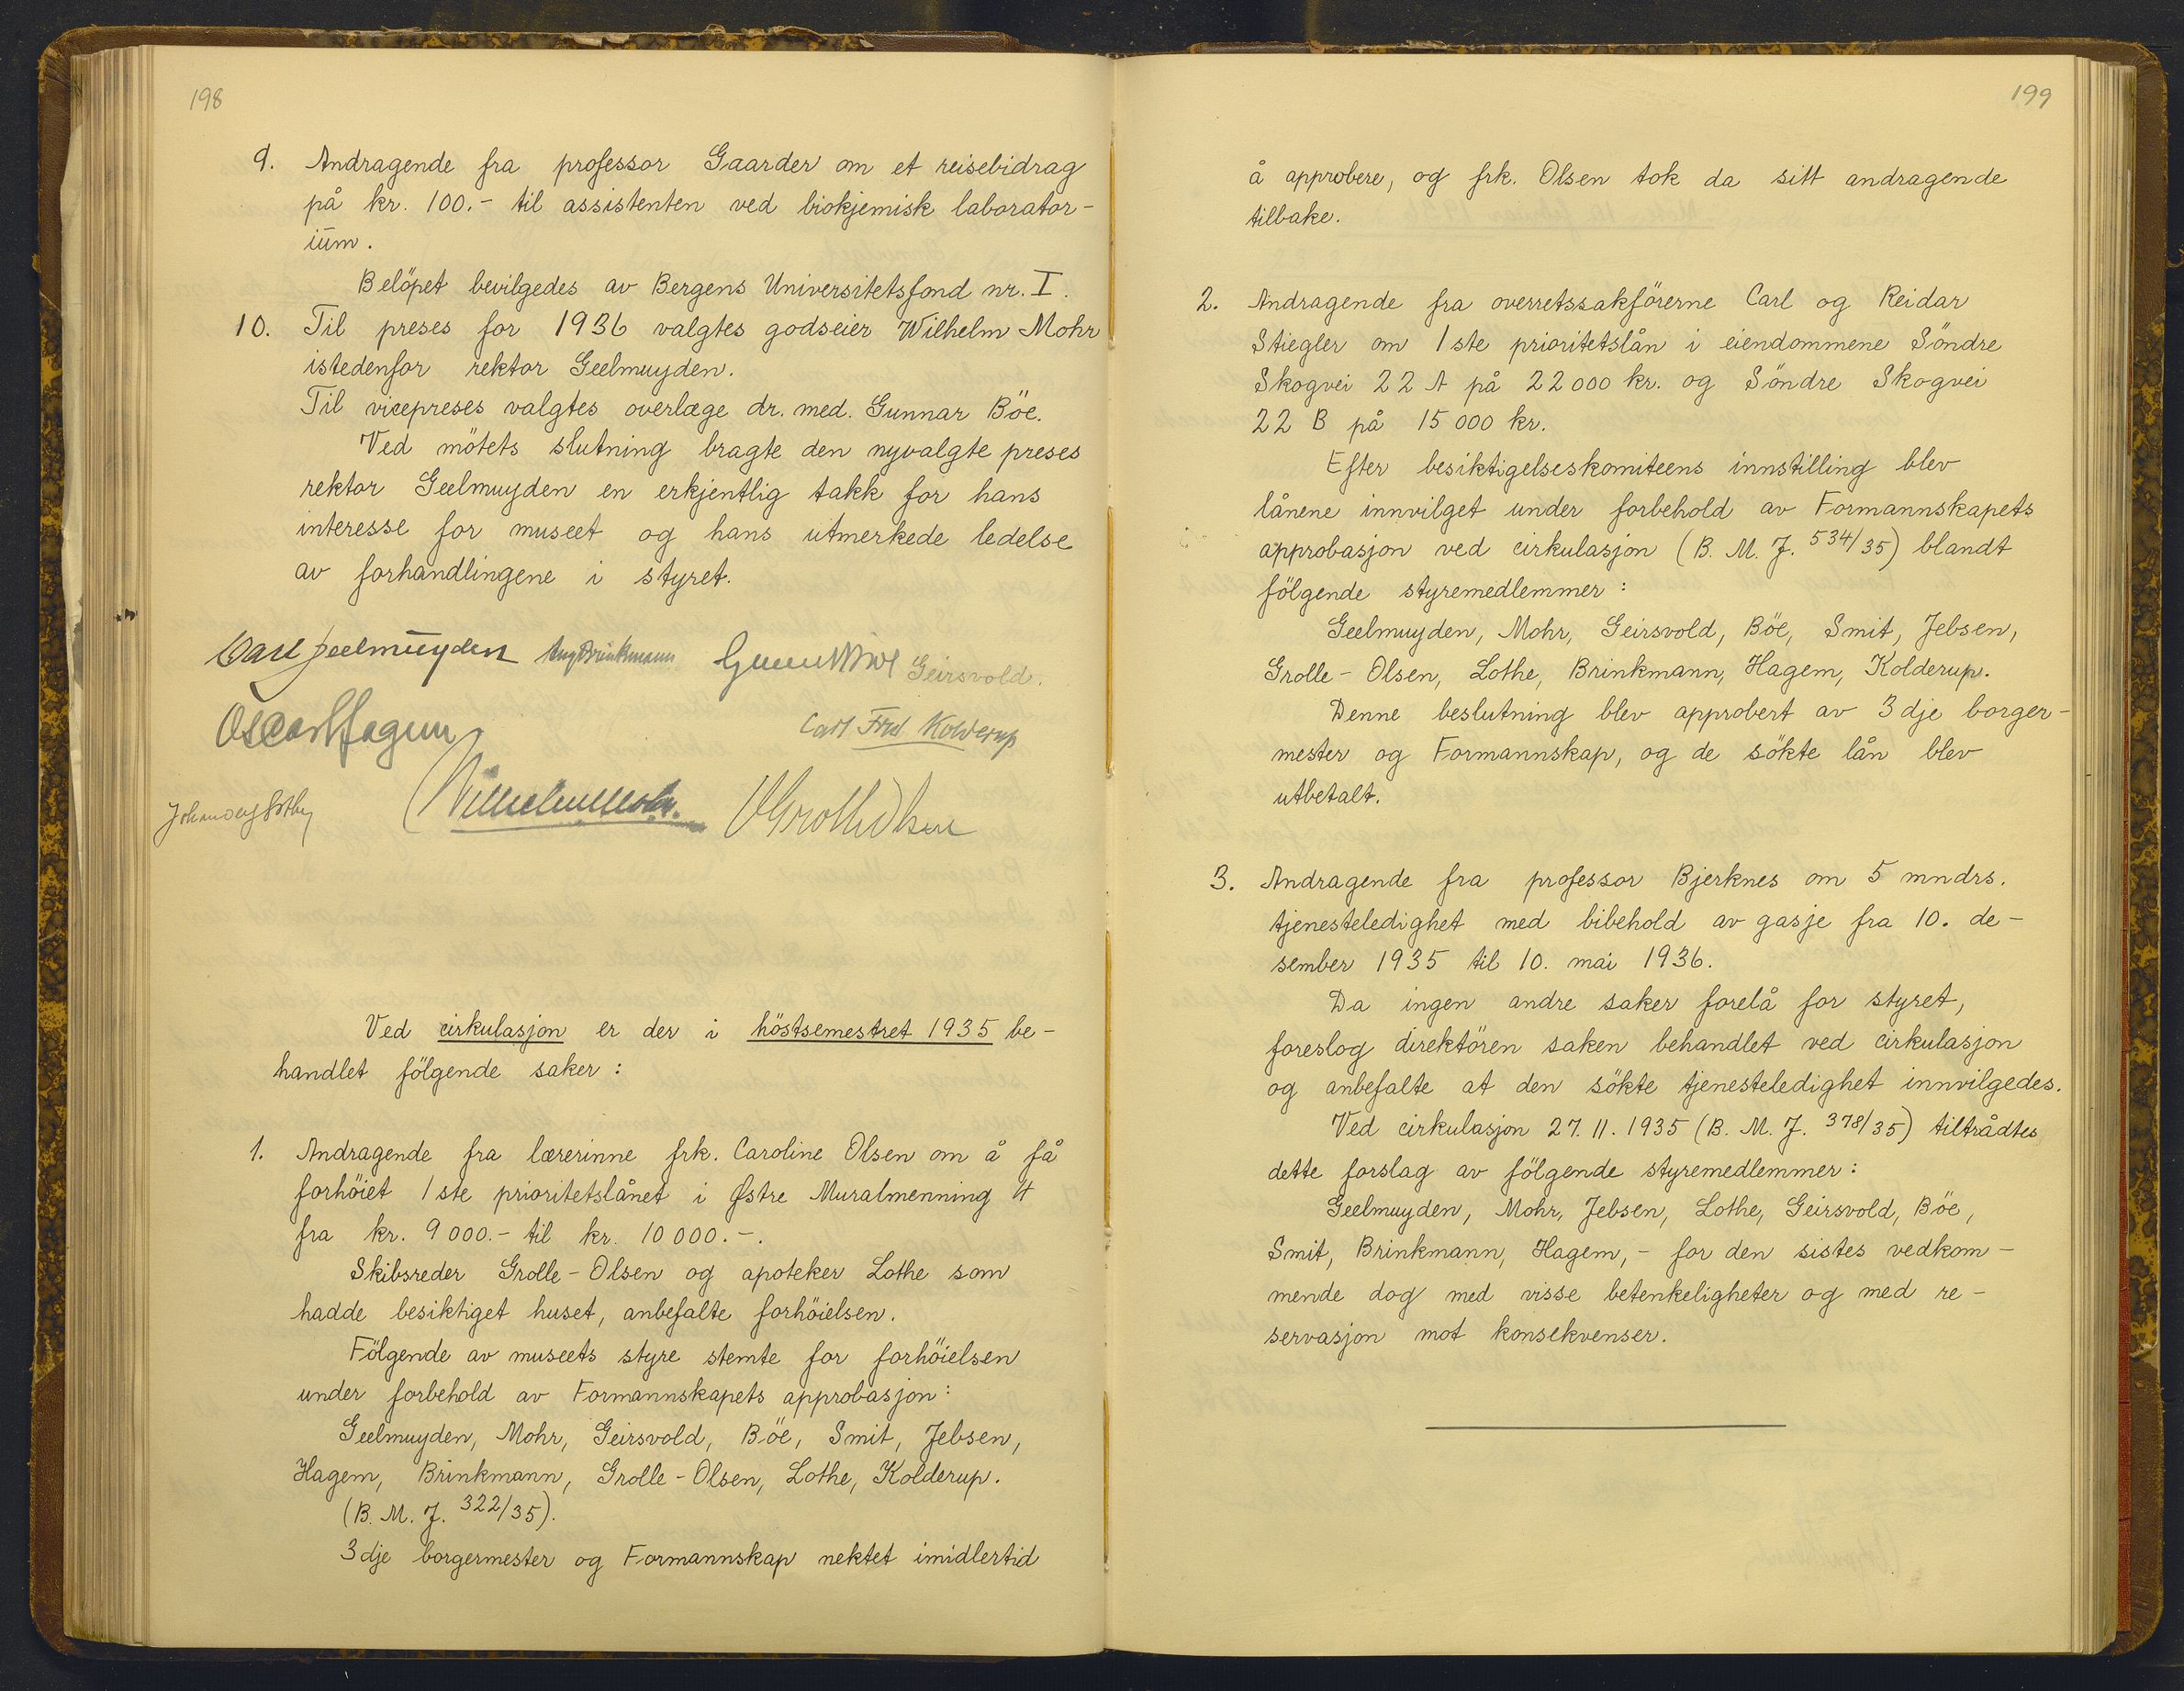 198
9. Andragende fra professor Gaarder om et reisebidrag
på kr. 100.- til assistenten ved biokjemisk laborator-
ium.
Belöpet bevilgedes av Bergens Universitetsfond nr. I.
10. Til preses for 1936 valgtes godseier Wilhelm Mohr
istedenfor rektor Geelmuyden.
Til vicepreses valgtes overlæge dr. med. Gunnar Böe.
Ved mötets slutning bragte den nyvalgte preses
rektor Geelmuyden en erkjentlig takk for hans
interesse for museet og hans utmerkede ledelse
av forhandlingene i styret.
Carl Geelmuyden Aug Brinkmann Gunnar Böe Geirsvold.
Oscar Hagem Carl Fred. Kolderup
Wilhelm Mohr. Grolle Olsen
Ved cirkulasjon er der i höstsemestret 1935 be-
handlet fölgende saker:
1. Andragende fra lærerinne frk. Caroline Olsen om å få
forhöiet 1ste prioritetslånet i Østre Muralmenning 4
fra kr. 9000.- til kr. 10000.-.
Skibsreder Grolle-Olsen og apoteker Lothe som
hadde besiktiget huset, anbefalte forhöielsen.
Fölgende av museets styre stemte for forhöielsen
under forbehold av Formannskapets approbasjon:
Geelmuyden, Mohr, Geirsvold, Böe, Smit, Jebsen,
Hagem, Brinkmann, Grolle-Olsen, Lothe, Kolderup.
(B. M. J. 322/35).
3dje borgermester og Formannskap nektet imidlertid
199
å approbere, og frk. Olsen tok da sitt andragende
tilbake.
2. Andragende fra overretssakförerne Carl og Reidar
Stiegler om 1ste prioritetslån i eiendommene Söndre
Skogvei 22 A på 22000 kr. og Söndre Skogvei
22 B på 15000 kr.
Efter besiktigelseskomiteens innstilling blev
lånene innvilget under forbehold av Formannskapets
approbasjon ved cirkulasjon (B. M. J. 534/35) blandt
fölgende styremedlemmer:
Geelmuyden, Mohr, Geirsvold, Böe, Smit, Jebsen,
Grolle-Olsen, Lothe, Brinkmann, Hagem, Kolderup.
Denne beslutning blev approbert av 3dje borger-
mester og Formannskap, og de sökte lån blev
utbetalt.
3. Andragende fra professor Bjerknes om 5 mndrs.
tjenesteledighet med bibehold av gasje fra 10. de-
sember 1935 til 10. mai 1936.
Da ingen andre saker forelå for styret,
foreslog direktören saken behandlet ved cirkulasjon
og anbefalte at den sökte tjenesteledighet innvilgedes.
Ved cirkulasjon 27.11.1935 (B. M. J. 378/35) tiltrådtes
dette forslag av fölgende styremedlemmer:
Geelmuyden, Mohr, Jebsen, Lothe, Geirsvold, Böe,
Smit, Brinkmann, Hagem, - for den sistes vedkom-
mende dog med visse betenkeligheter og med re-
servasjon mot konsekvenser.